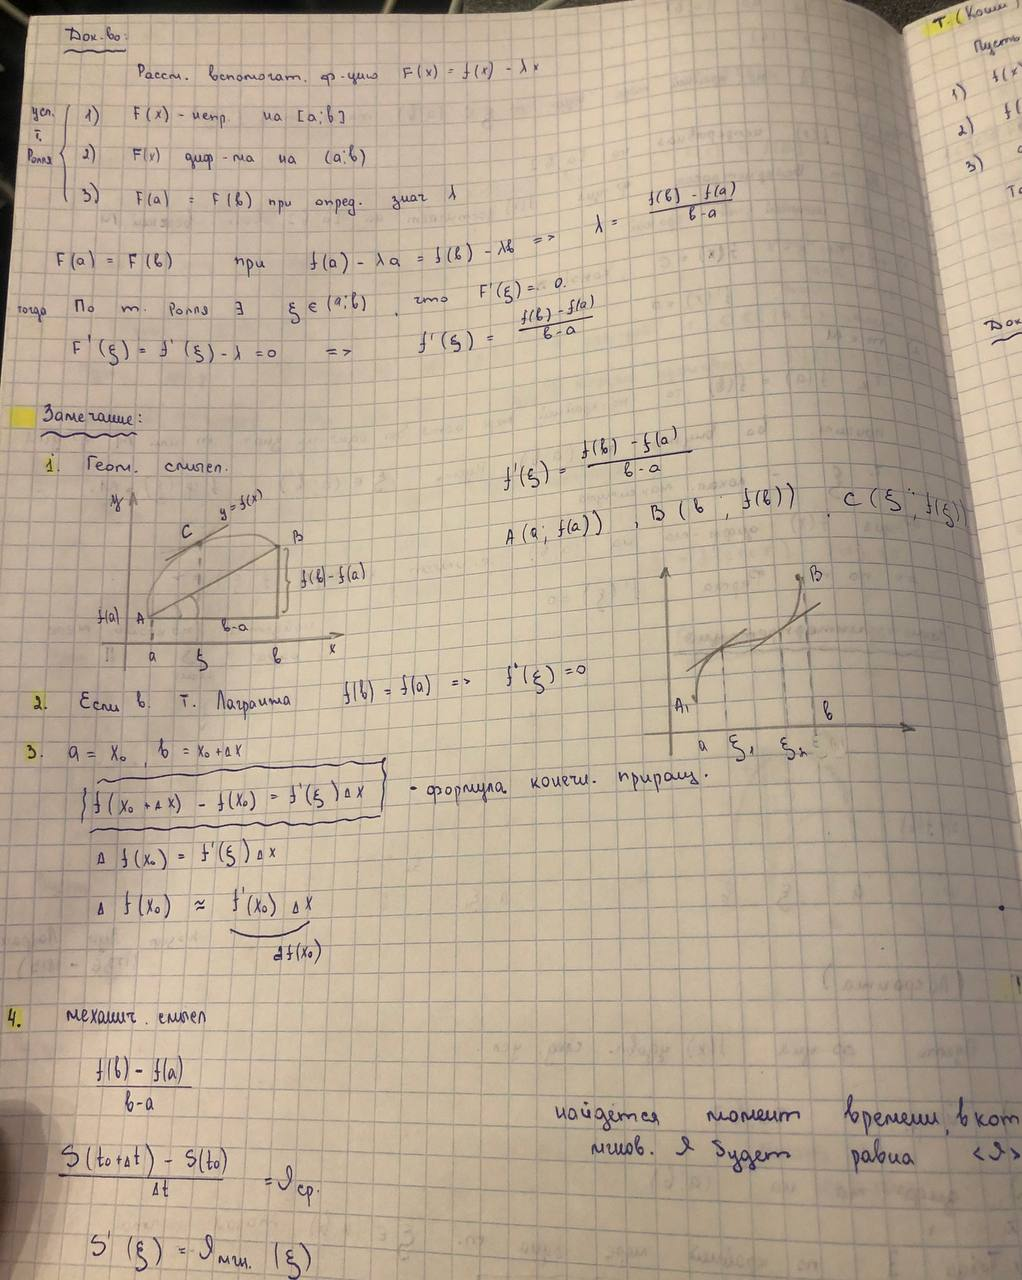 Док-во:
Рассм. вспомогат. ф-цию F(x) = f(x) - λx
усл. т. Ролля
1) F(x) - непр. на [a;b]
2) F(x) диф-ма на (a;b)
3) F(a) = F(b) при опред. знач λ
F(a) = F(b) при f(a) - λa = f(b) - λb => λ = (f(b) - f(a))/(b-a)
тогда По т. Ролля ∃ ξ ∈ (a;b), что F'(ξ) = 0.
F'(ξ) = f'(ξ) - λ = 0 => f'(ξ) = (f(b) - f(a))/(b-a)
Замечание:
1. Геом. смысл.
f'(ξ) = (f(b) - f(a))/(b-a)
A(a; f(a)), B(b; f(b)), C(ξ; f(ξ))
y
C
y=f(x)
B
f(b)-f(a)
f(a)
A
b-a
a ξ b x
B
A
a ξ₁ ξ₂ b
2. Если в т. Лагранжа f(b) = f(a) => f'(ξ) = 0
3. a = x₀, b = x₀+Δx
f(x₀ + Δx) - f(x₀) = f'(ξ) Δx - формула конечн. приращ.
Δ f(x₀) = f'(ξ) Δx
Δ f(x₀) ≈ f'(x₀) Δx
df(x₀)
4. механич. смысл
(f(b) - f(a))/(b-a)
(S(t₀+Δt) - S(t₀))/Δt = ϑ ср.
S'(ξ) = ϑ мгн. (ξ)
найдётся момент времени, в кот
мгнов. ϑ будет равна <ϑ>
Т. (Коши)
Пусть
1) f(x)
2) f(
3)
То
Док